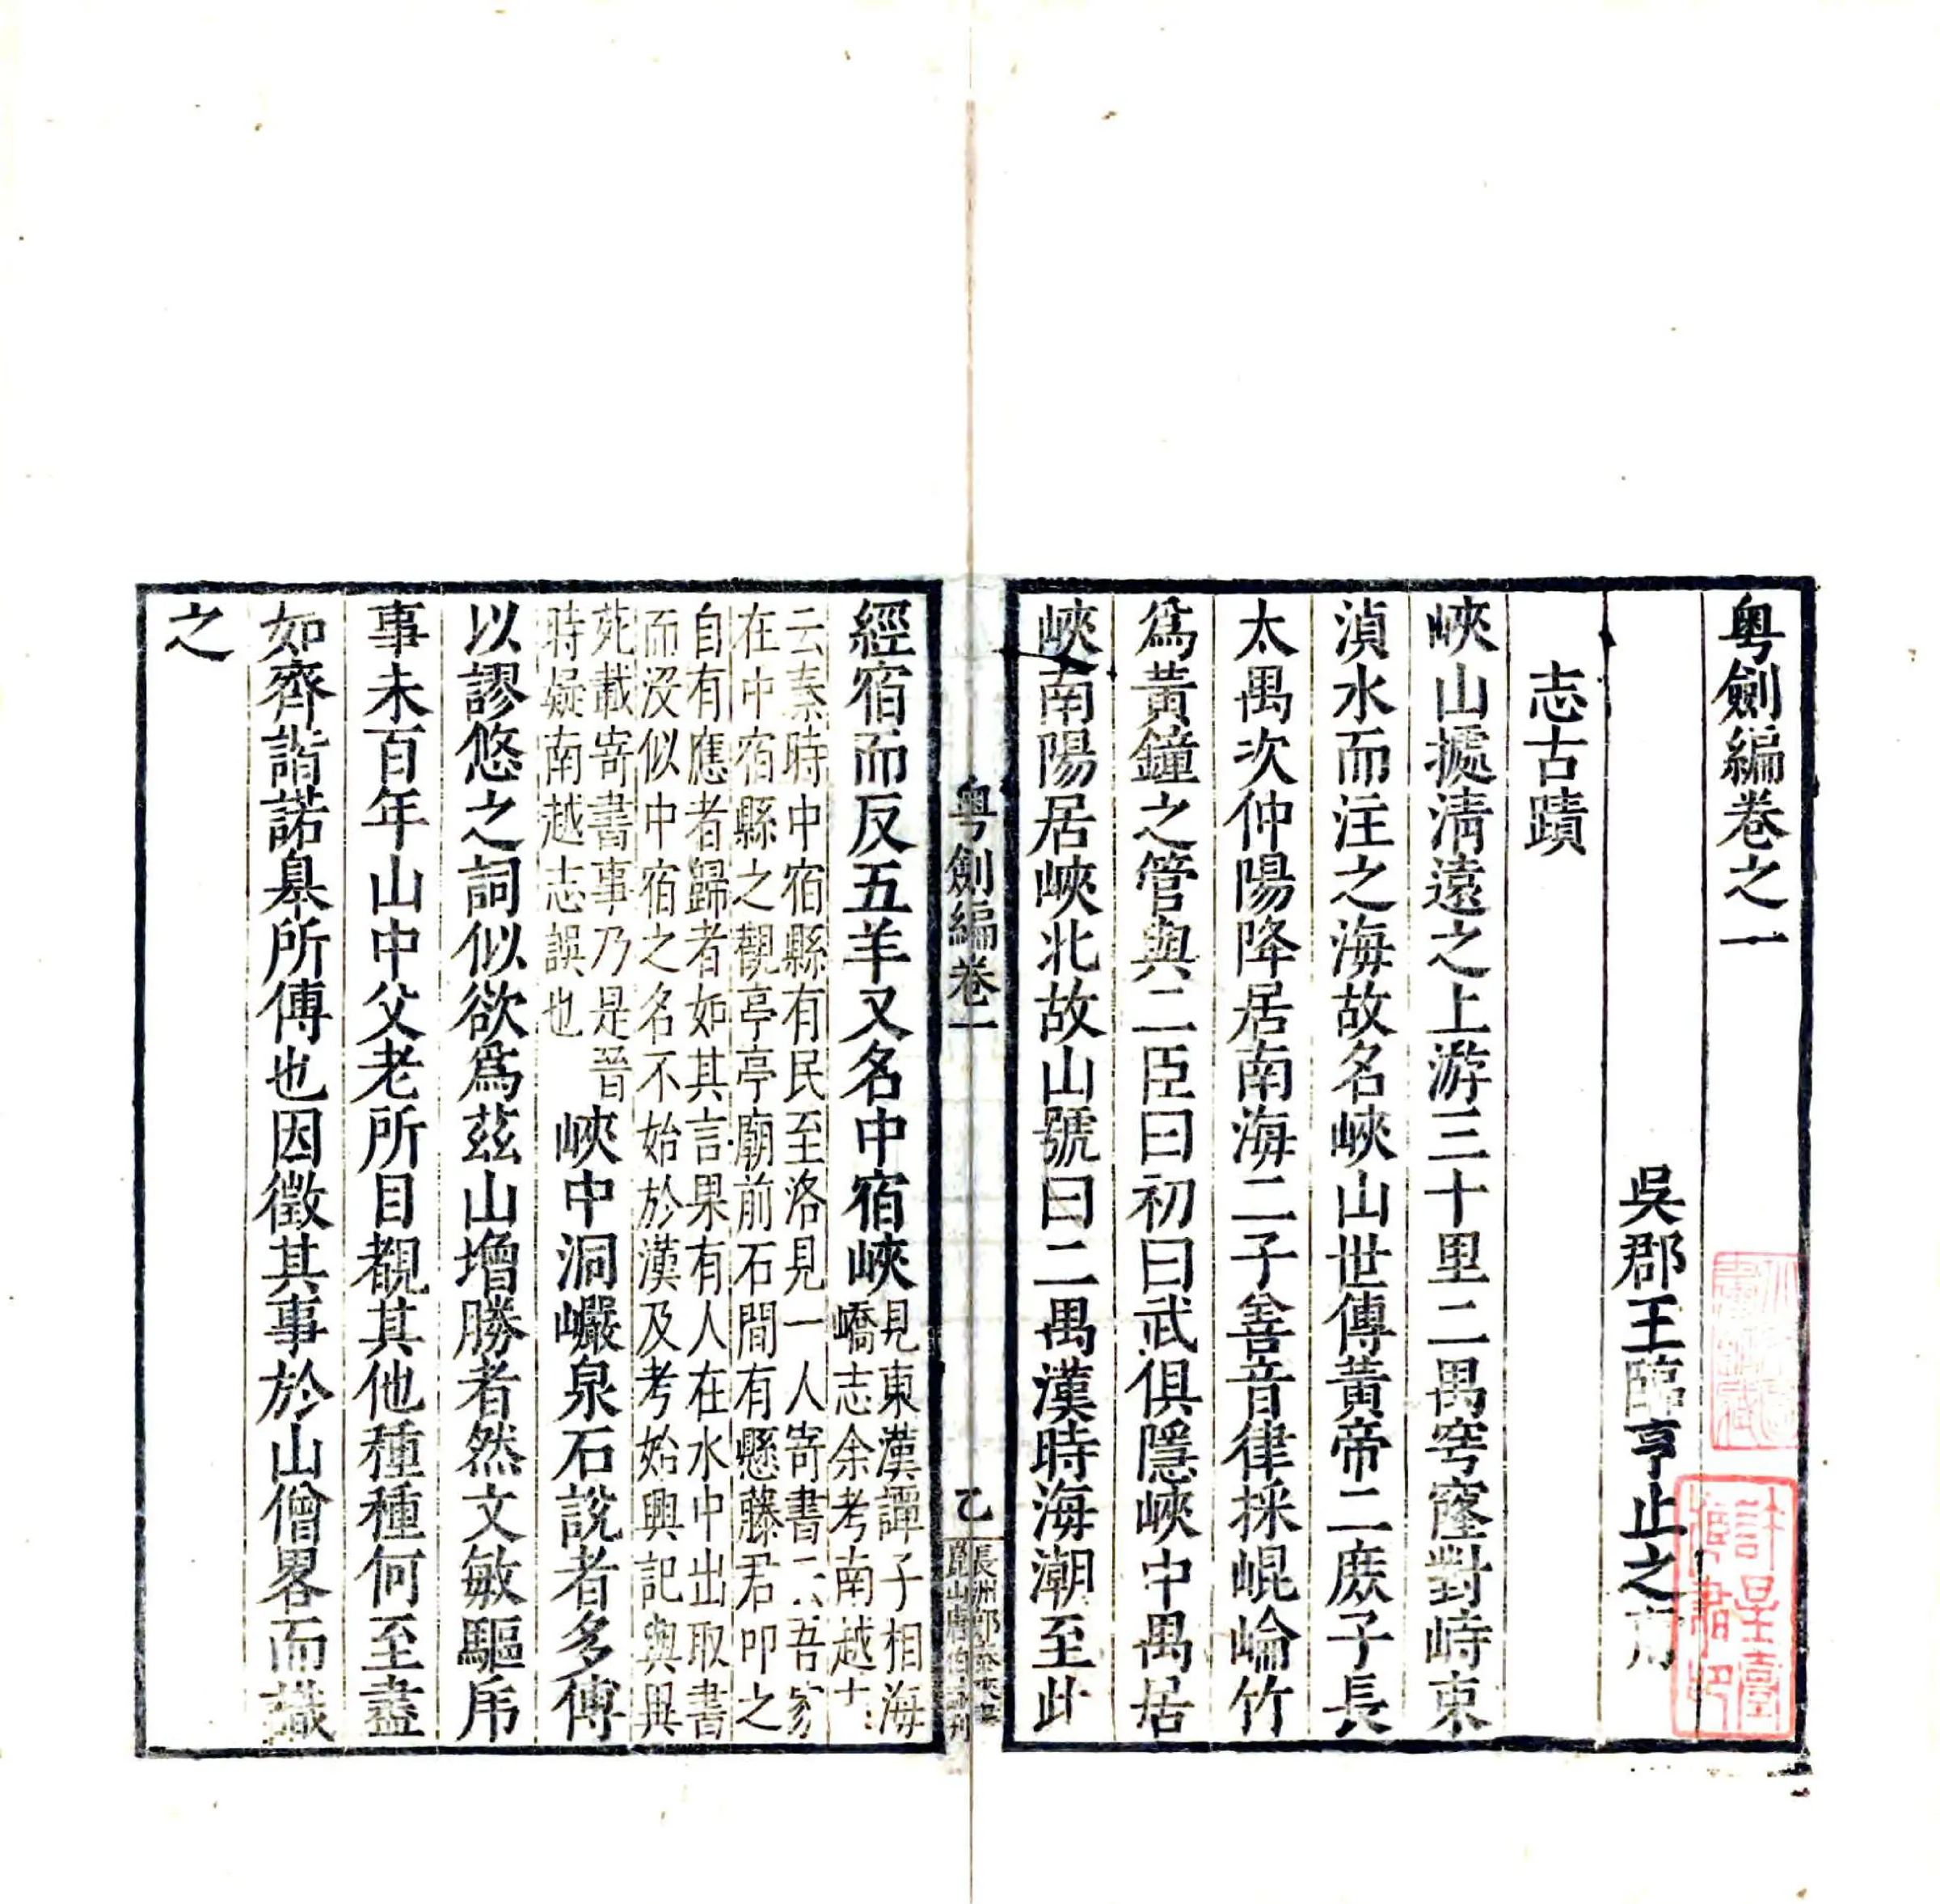 粤劍編卷之一
吳郡王臨亨止之甫
志古蹟
峽山據淸遠之上游三十里二禺穹窿對峙束
湞水而注之海故名峽山世傳黃帝二庶子長
太禺次仲陽降居南海二子善音律採崐崘竹
爲黃鐘之管與二臣曰初曰武俱隱峽中禺居
峽南陽居峽北故山號曰二禺漢時海潮至此
粤劍編卷一
乙
經宿而反五羊又名中宿峽
見東漢譚子相海
嶠志余考南越志
云秦時中宿縣有民至洛見一人寄書云吾家
在中宿縣之觀亭亭廟前石間有懸藤君叩之
自有應者歸者如其言果有人在水中出取書
而沒似中宿之名不始於漢及考始興記與異
苑載寄書事乃是晉
時疑南越志誤也
峽中洞巖泉石說者多傅
以謬悠之詞似欲爲茲山增勝者然文敏驅虎
事未百年山中父老所目覩其他種種何至盡
如齊諧諾皋所傳也因徵其事於山僧畧而識
之